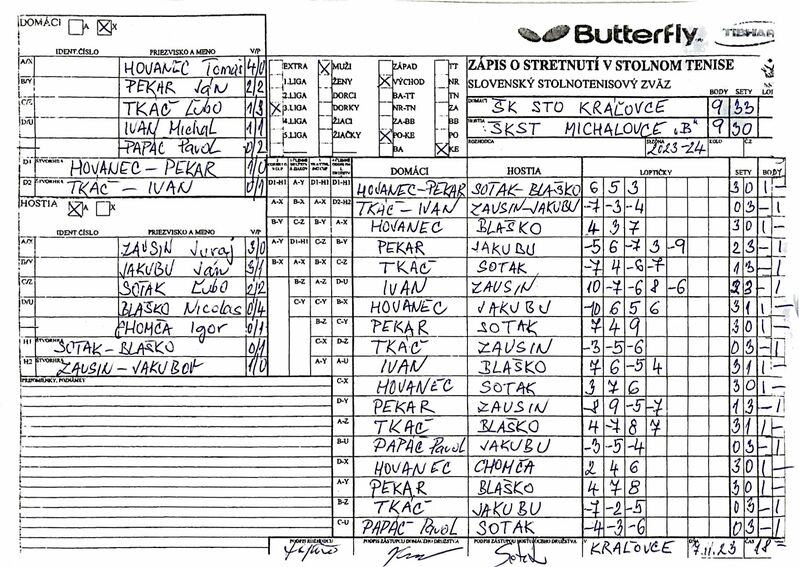 DOMÁCI A X
Butterfly TIBHAR
IDENT.ČÍSLO PRIEZVISKO A MENO V/P
A/X HOVANEC Tomáš 4/0
B/Y PEKAR Ján 2/2
C/Z TKÁČ Ľubo 1/3
D/U IVAN Michal 1/1
PAPÁČ Pavol 0/2
D1 ŠTVORHRA HOVANEC - PEKAR 1/0
D2 ŠTVORHRA TKÁČ - IVAN 0/1
HOSTIA X A X
IDENT.ČÍSLO PRIEZVISKO A MENO V/P
A/X ZAUSIN Juraj 3/0
B/Y JAKUBU Ján 3/1
C/Z SOTAK Ľubo 2/2
D/U BLAŠKO Nicolas 0/4
CHOMČA Igor 0/1
H1 ŠTVORHRA SOTAK - BLAŠKO 0/1
H2 ŠTVORHRA ZAUSIN - JAKUBOV 1/0
PRIPOMIENKY, POZNÁMKY
EXTRA X MUŽI ZÁPAD TT
1.LIGA ŽENY X VÝCHOD NR
2.LIGA DORCI BA-TT TN
X 3.LIGA DORKY NR-TN ZA
4.LIGA ŽIACI ZA-BB BB
5.LIGA ŽIAČKY X PO-KE PO
BA X KE
ZÁPIS O STRETNUTÍ V STOLNOM TENISE
SLOVENSKÝ STOLNOTENISOVÝ ZVÄZ
BODY SETY
DOMÁCI ŠK STO KRAĽOVCE 9 33
HOSTIA ŠKST MICHALOVCE "B" 9 30
ROZHODCA SEZÓNA 2023-24 KOLO Č.Z
DOMÁCI HOSTIA LOPTIČKY SETY BODY
D1-H1 A-Y D1-H1 D1-H1 HOVANEC-PEKAR SOTAK-BLAŠKO 6 5 3 3 0 1 -
A-X B-X A-X D2-H2 TKÁČ - IVAN ZAUSIN-JAKUBU -7 -3 -4 0 3 - 1
B-Y C-Z B-Y A-X HOVANEC BLAŠKO 4 3 7 3 0 1 -
A-Y D1-H1 C-Z B-Y PEKAR JAKUBU -5 6 -7 3 -9 2 3 - 1
B-X A-X B-X C-Z TKÁČ SOTAK -7 4 -6 -7 1 3 - 1
B-Z A-Z D-U IVAN ZAUSIN 10 -7 -6 8 -6 2 3 - 1
C-Y C-Y B-X HOVANEC JAKUBU -10 6 5 6 3 1 1 -
B-Z C-Y PEKAR SOTAK 7 4 9 3 0 1 -
C-X D-Z TKÁČ ZAUSIN -3 -5 -6 0 3 - 1
A-Y A-U IVAN BLAŠKO 7 6 -5 4 3 1 1 -
C-X HOVANEC SOTAK 3 7 6 3 0 1 -
D-Y PEKAR ZAUSIN -8 9 -5 -7 1 3 - 1
A-Z TKÁČ BLAŠKO 4 -7 8 7 3 1 1 -
B-U PAPÁČ Pavol JAKUBU -3 -5 -4 0 3 - 1
D-X HOVANEC CHOMČA 2 4 6 3 0 1 -
A-Y PEKAR BLAŠKO 4 7 8 3 0 1 -
B-Z TKÁČ JAKUBU -7 -2 -5 0 3 - 1
C-U PAPÁČ Pavol SOTAK -4 -3 -6 0 3 - 1
PODPIS ROZHODCU PODPIS ZÁSTUPCU DOMÁCEHO DRUŽSTVA PODPIS ZÁSTUPCU HOSŤUJÚCEHO DRUŽSTVA V KRAĽOVCE DŇA 7.11.23 ČAS 18